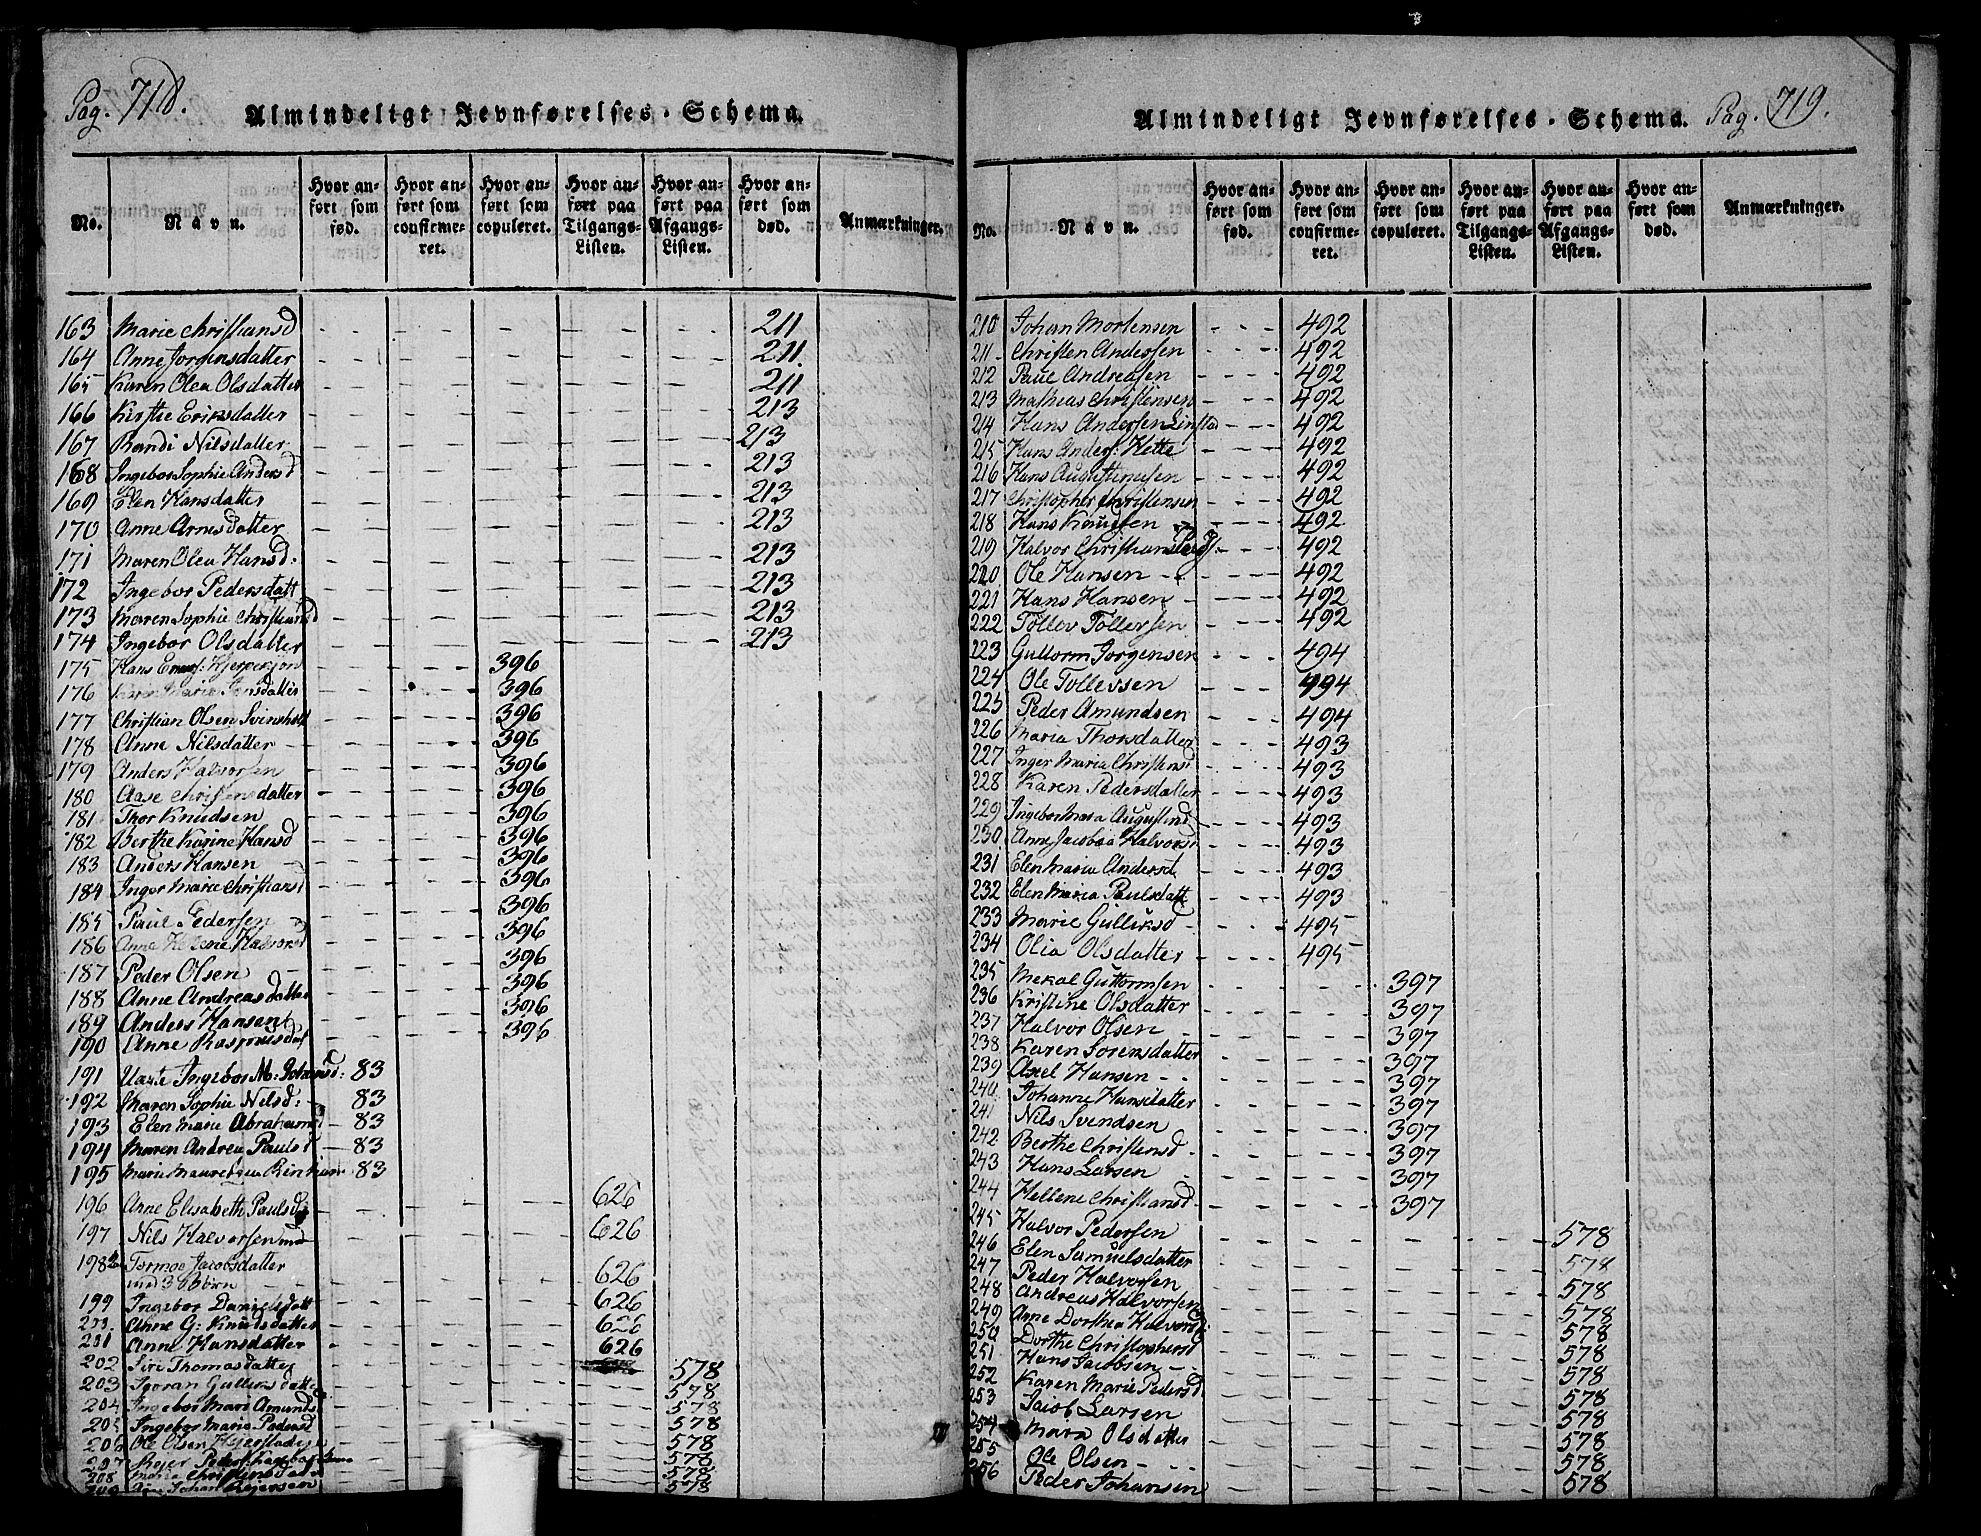 Pag. 718.
Almindeligt Jevnførelses-Schema.
No.
Navn.
Hvor anført som fød.
Hvor anført som confirmeret.
Hvor anført som copuleret.
Hvor anført paa Tilgangs-Listen.
Hvor anført paa Afgangs-Listen.
Hvor anført som død.
Anmærkninger.
163 Marie Christiansd 211
164 Anne Jorgensdatter 211
165 Karen Olea Olsdatter 211
166 Kirstie Eriksdatter 213
167 Randi Nilsdatter 213
168 Ingebor Sophie Andersd 213
169 Elen Hansdatter 213
170 Anne Arnesdatter 213
171 Maren Olea Hansd: 213
172 Ingebor Pedersdatt 213
173 Maren Sophie Christiansd 213
174 Ingebor Olsdatter 213
175 Hans 396
176 Karen Maria Jensdatter 396
177 Christian Olsen 396
178 Anne Nilsdatter 396
179 Anders Halvorsen 396
180 Aase Christensdatter 396
181 Thor Knudsen 396
182 Berthe Karine Hansd 396
183 Anders Hansen 396
184 Inger Marie Christiansd 396
185 Paul Pedersen 396
186 Anne Helene Halvorsd 396
187 Peder Olsen 396
188 Anne Andreasdatter 396
189 Anders Hansen 396
190 Anne 396
191 Ingebor M: 83
192 Maren Sophie Nilsd: 83
193 Elen Marie Abrahamsd 83
194 Maren Andrea Paulsd 83
195 Marie 83
196 Anne Elisabeth Paulsd 626
197 Nils Halvorsen 626
198 Tormoe Jacobsdatter
med 3 børn 626
199 Ingebor Danielsdatt 626
200. Anne G: Knudsdatter 626
201 Anne Hansdatter 626
202 Siri Thomasdatter 578
203 Joran 578
204 Ingebor Mari Amundsd 578
205 Ingebor Maria Pedersd 578
206 Ole Olsen 578
207 578
208 Maria Christensdatt 578
209 Johan 578
Almindeligt Jevnførelses-Schema.
Pag. 719.
No.
Navn.
Hvor anført som fød.
Hvor anført som confirmeret.
Hvor anført som copuleret.
Hvor anført paa Tilgangs-Listen.
Hvor anført paa Afgangs-Listen.
Hvor anført som død.
Anmærkninger.
210 Johan Mortensen 492
211 Christen Andersen 492
212 Paul Andreasen 492
213 Mathias Christensen 492
214 Hans Andersen 492
215 Hans Anders: Hette 492
216 Hans Augustinusen 492
217 Christopher Christensen 492
218 Hans Knudsen 492
219 Halvor Christiansen 492
220 Ole Hansen 492
221 Hans Hansen 492
222 Tollev Tollefsen 492
223 Guttorm Jorgensen 494
224 Ole Tollessen 494
225 Peder Amundsen 494
226 Maria Thorsdatter 493
227 Inger Maria Christensd 493
228 Karen Pedersdatter 493
229 Ingebor Maria Augustinsd 493
230 Anne Jacobea Halvorsd 493
231 Elen Maria Andersd 493
232 Elen Maria Paulsdatt 493
233 Marie Gulliksd 495
234 Olia Olsdatter 495
235 Mekal Guttormsen 397
236 Kristine Olsdatter 397
237 Halvor Olsen 397
238 Karen Sorensdatter 397
239 Axel Hansen 397
240 Johanne Hansdatter 397
241 Nils Svendsen 397
242 Berthe Christensd 397
243 Hans Larsen 397
244 Hellene Christiansd 397
245 Halvor Pedersen 578
246 Elen Samuelsdatter 578
247 Peder Halvorsen 578
248 Andreas Halvorsen 578
249 Anne Dorthea Halvorsd 578
250 Dorthe Christophersd 578
251 Hans Jacobsen 578
252 Karen Marie Pedersd 578
253 Jacob Larsen 578
254 Mara Olsdatter 578
255 Ole Olsen 578
256 Peder Johansen 578